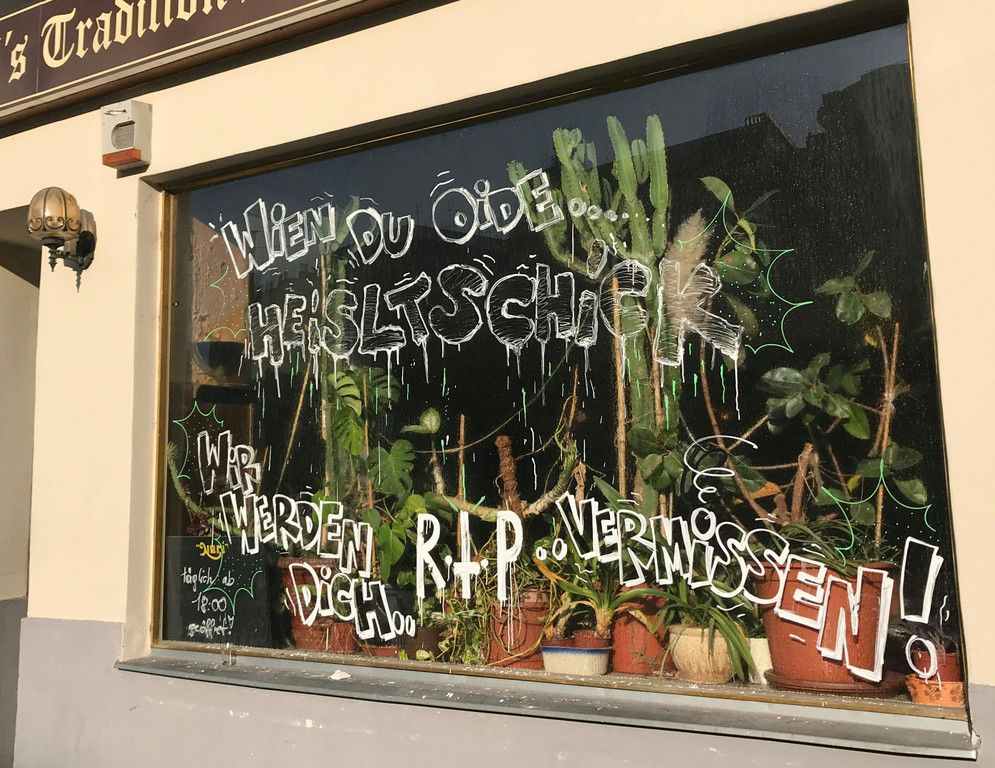 's Tradition
WIEN DU OIDE....
HEISLTSCHICK
WIR
WERDEN
DICH.. R.I.P ..VERMISSEN!
täglich ab
18:00
geöffnet!